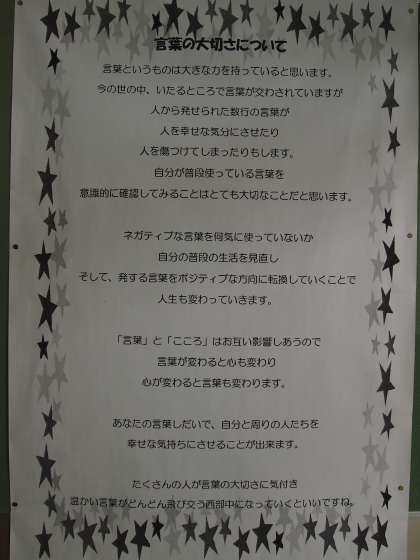 言葉の大切さについて
言葉というものは大きな力を持っていると思います。
今の世の中、いたるところで言葉が交わされていますが
人から発せられた数行の言葉が
人を幸せな気分にさせたり
人を傷つけてしまったりもします。
自分が普段使っている言葉を
意識的に確認してみることはとても大切なことだと思います。
ネガティブな言葉を何気に使っていないか
自分の普段の生活を見直し
そして、発する言葉をポジティブな方向に転換していくことで
人生も変わっていきます。
「言葉」と「こころ」はお互い影響しあうので
言葉が変わると心も変わり
心が変わると言葉も変わります。
あなたの言葉しだいで、自分と周りの人たちを
幸せな気持ちにさせることが出来ます。
たくさんの人が言葉の大切さに気付き
温かい言葉がどんどん飛び交う西部中になっていくといいですね。